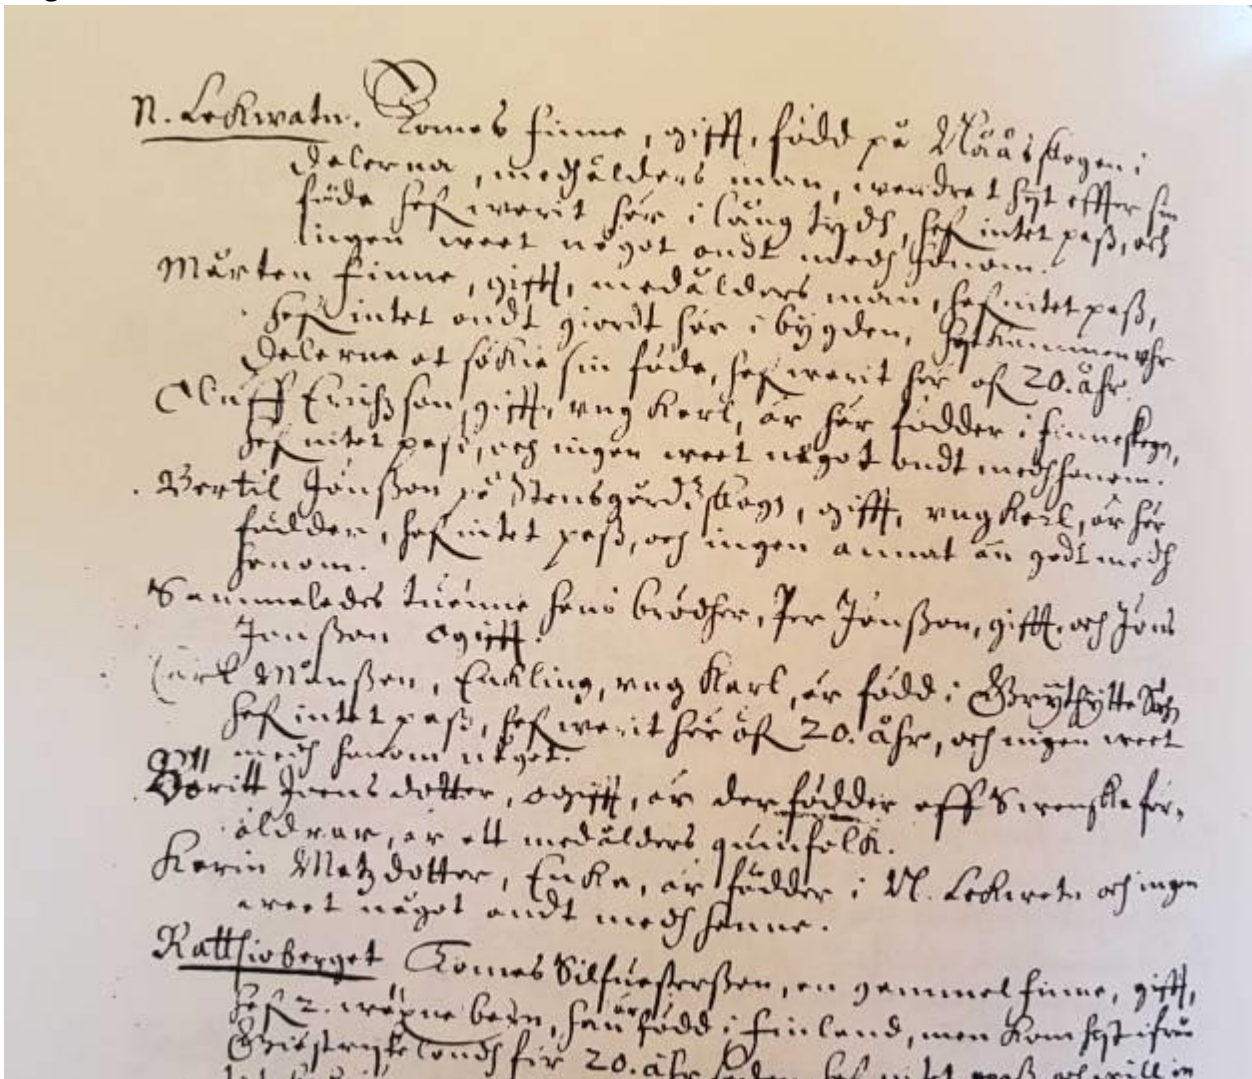 N. Lekwatn. Tomes finne, gifft, född på Nåås skogen i
dalerna, medhålders man, wandrat hÿt effter sin
föda haf. warit hår i lång tydh, haf. intet paß, och
ingen weet något ondt medh honom.
Mårten finne, gifft, medålders man, haf. intet paß,
haf. intet ondt giordt hår i bÿgden, hÿtkummen uhr
dalerna at sökia sin föda, haf. warit hår öf. 20. åhr.
Oluff Erichßson, gifft, vng Karl, är hår födder i finneskogn,
haf. intet paß, och ingen weet något ondt medh honom.
Bertil Jönßon på Stensgårdz skogn, gifft, vng Karl, är hår
födder, haf. intet paß, och ingen annat än godt medh
honom.
Sammaledes tuenne hans brödher, Per Jönßon, gifft, och Jöns
Jönßon ogifft.
Månßon, Enkling, vng Karl, är född i Grythytte Sochn
haf. intet paß, haf. warit hår öf. 20. åhr, och ingen weet
medh honom något.
Böritt Jönsdotter, ogifft, är der födder aff Swenska för-
äldrar, är ett medålders quinfolk.
Karin Matzdotter, Enka, är födder i N. Lekwatn och ingen
weet något ondt medh henne.
Rattsioberget Tomes Silfuersterßon, en gammel finne, gifft,
haf. 2. wäxne barn, han är född i finland, men kom hÿt ifrån
Giestrikelandh för 20. åhr sedan, haf. intet paß och will in